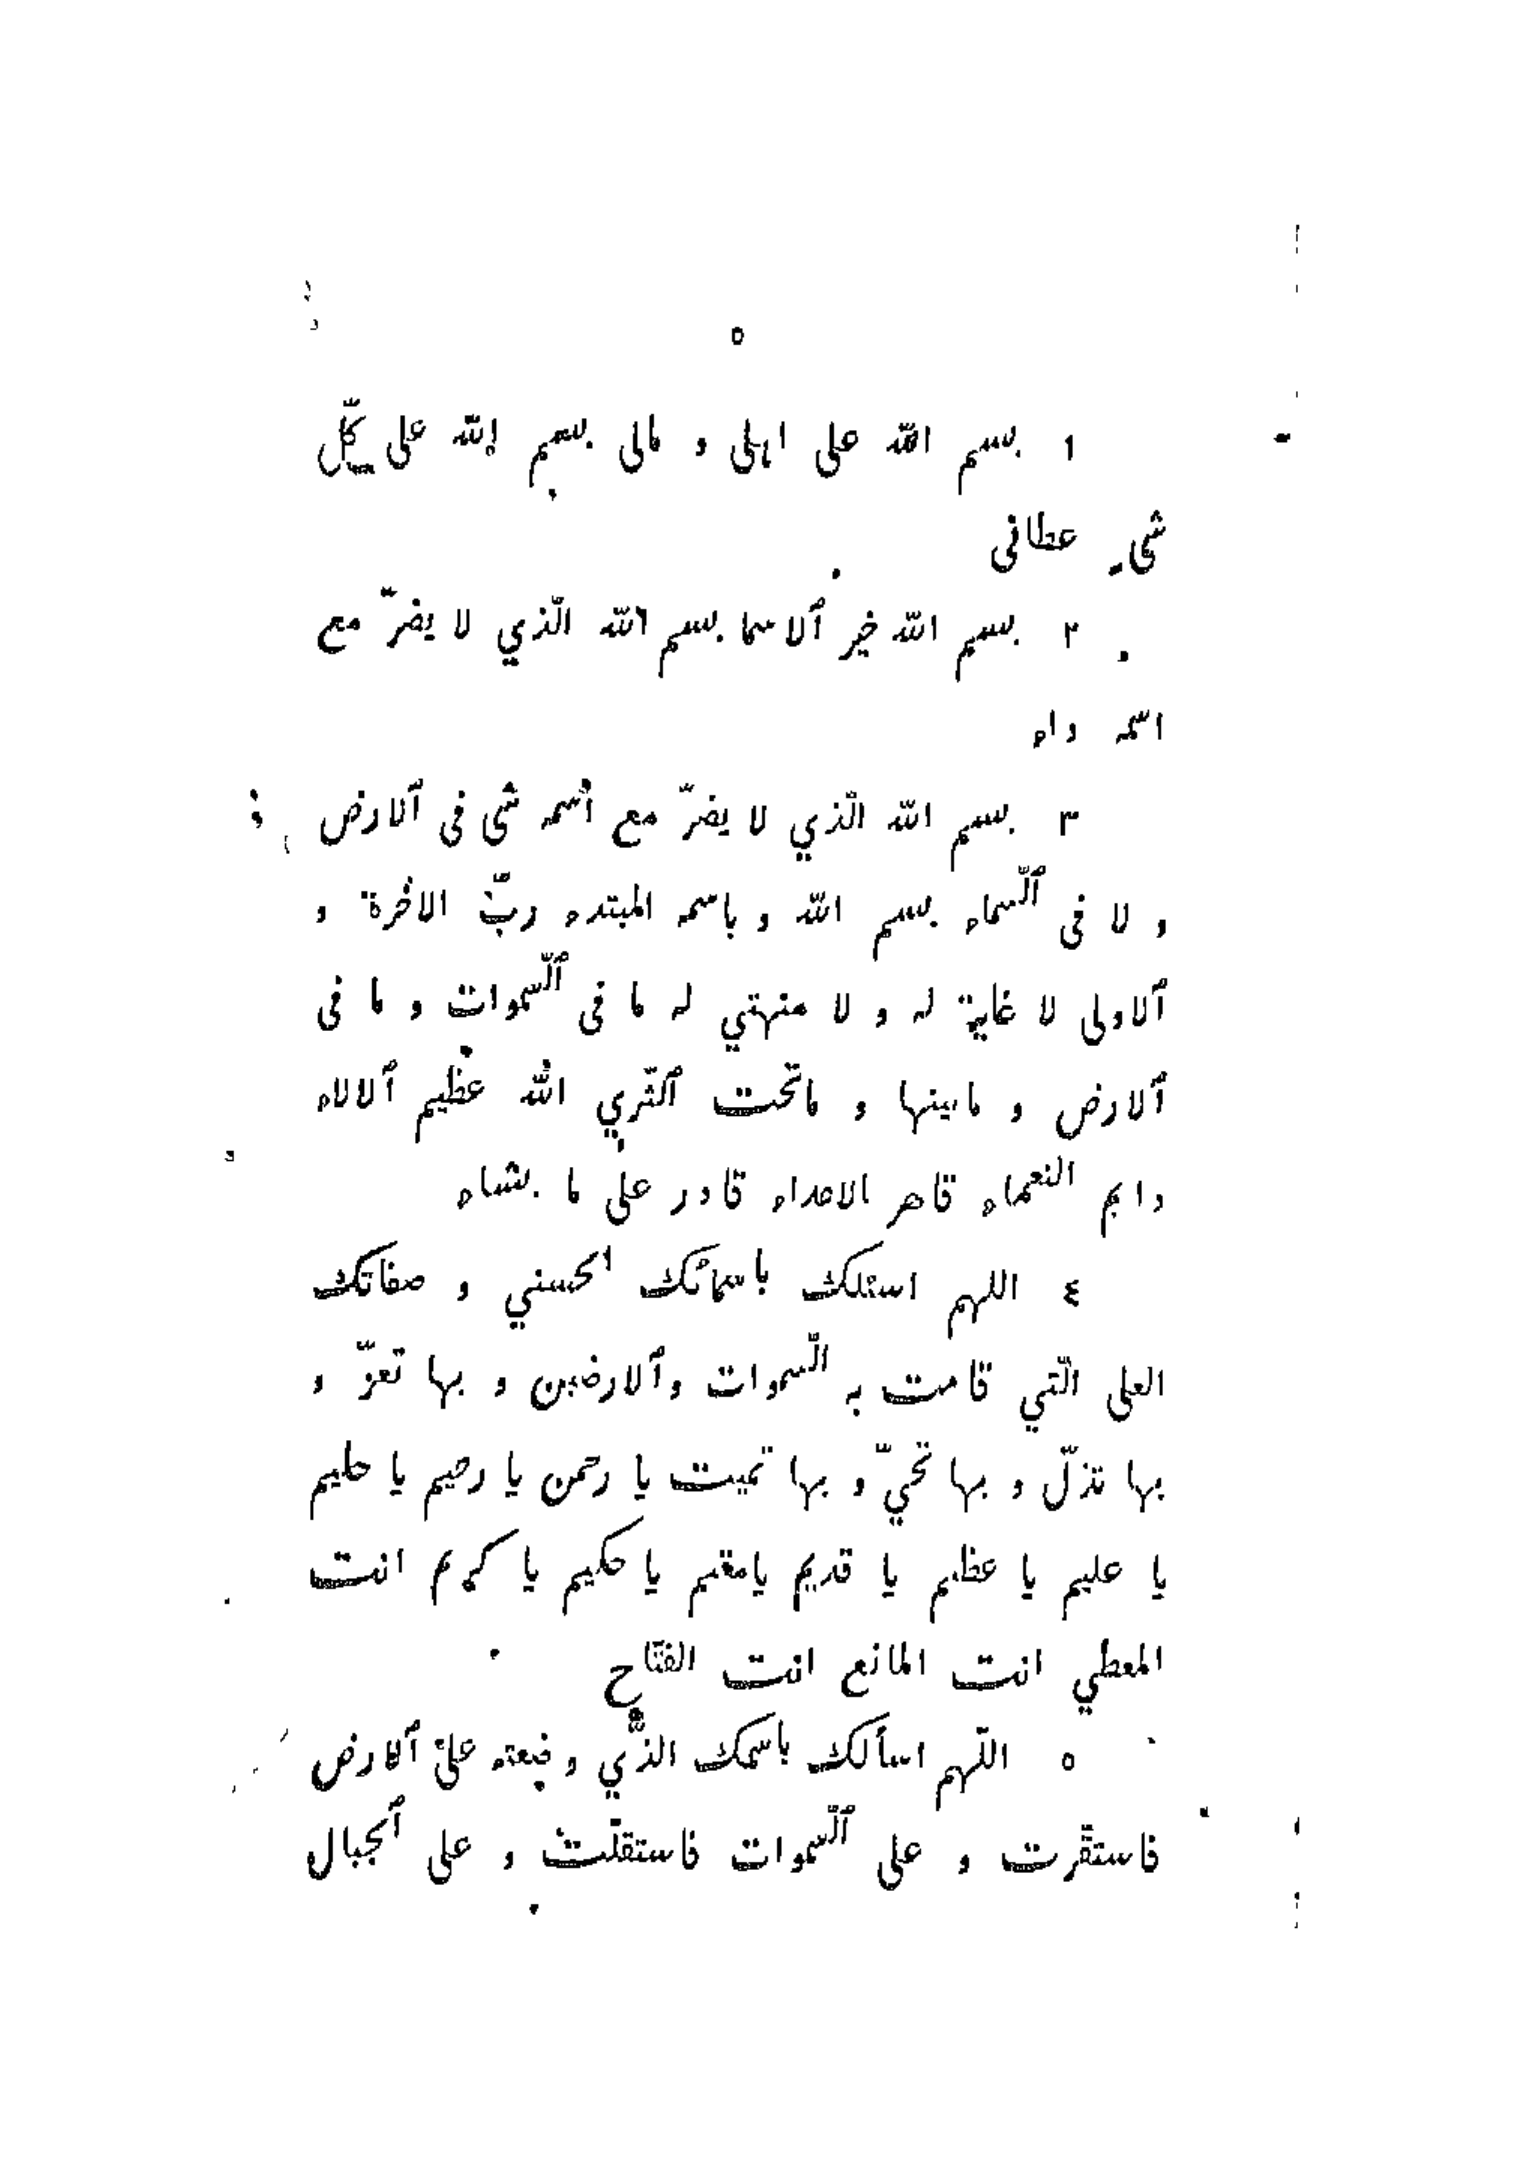 ٥
١ بسم الله على اهلى و مالى بسم الله على كلّ
شىء عطانى
٢ بسم الله خير ٱلاسما بسم الله الّذي لا يضرّ مع
اسمه داء
٣ بسم الله الّذي لا يضرّ مع ٱسمه شى فى ٱلارض
و لا فى ٱلّسماء بسم الله و باسمه المبتدء ربّ الاخرة و
ٱلاولى لا غاية له و لا منهتي له ما فى ٱلّسموات و ما فى
ٱلارض و مابينها و ماتحت ٱلثّري الله عظيم ٱلالاء
دايم النعماء قاهر الاعداء قادر على ما يشاء
٤ اللهم اسئلك باسمائك الحسني و صفاتك
العلى الّتي قامت به الّسموات وٱلارضين و بها تعزّ و
بها تذلّ و بها تحيّ و بها تميت يا رحمن يا رحيم يا حليم
يا عليم يا عظيم يا قديم يامقيم يا حكيم يا كريم انت
المعطي انت المانع انت الفتّاح
٥ اللّهم اسألك باسمك الذّي وضعته على ٱلارض
فاستقّرت و على ٱلّسموات فاستقلّت و على ٱلجبال